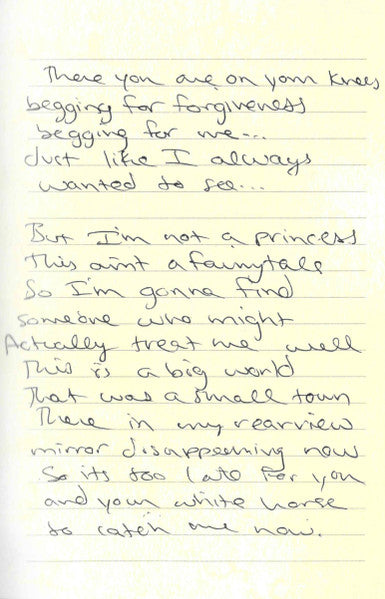 There you are on your knees
begging for forgiveness
begging for me...
Just like I always
wanted to see...
But I'm not a princess
this aint a fairrytale
So I'm gonna find
someone who might
Actually treat me well
This is a big world
That was a small town
There in my rearview
mirror disappeering now
So its too late for you
and your white horse
to catch me now.